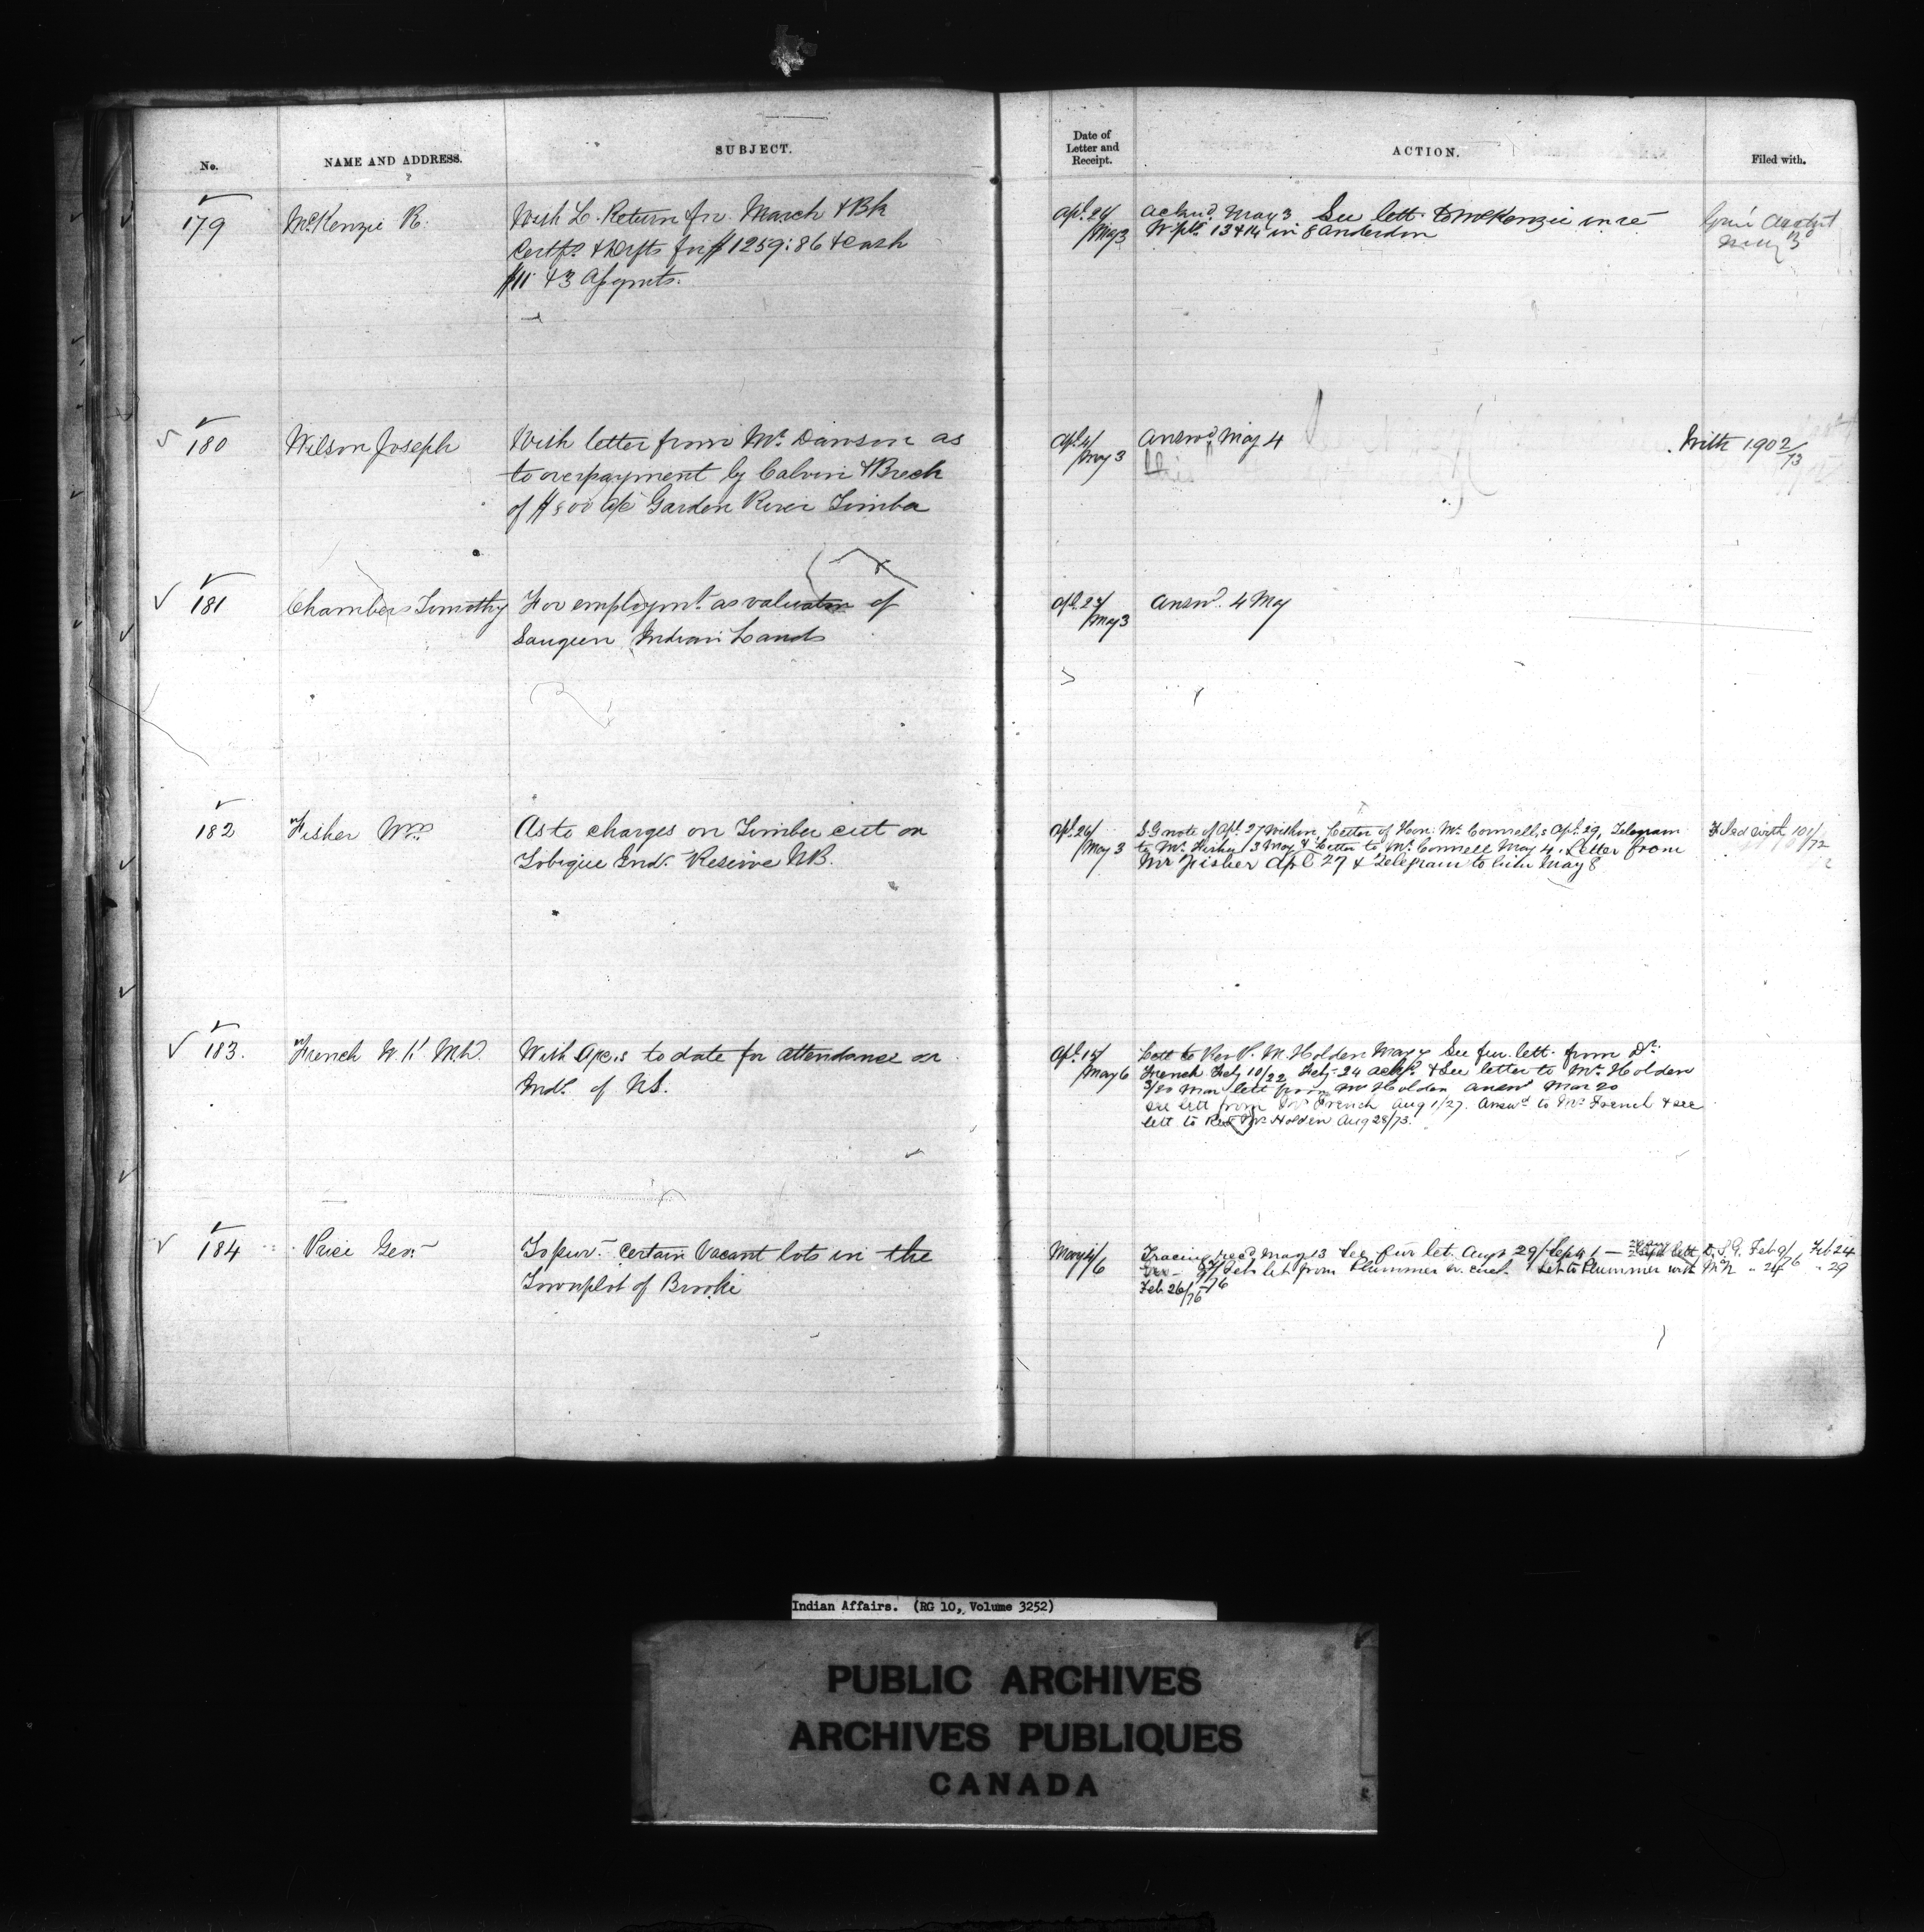 No.
NAME AND ADDRESS.
SUBJECT.
Date of
Letter and
Receipt.
ACTION.
Filed with.
179
McKenzie R.
With L. Return for March & Bk
Certfs. & Drfts for $1259:86 & Cash
$11 & 3 Assgnmts.
Apl. 24/
May 3
Acknd. May 3 See lett. to McKenzie in re
13 & 14 in 8 Anderdon
May 3
180
Wilson Joseph
With letter from Mr. Dawson as
to overpayment by Calvin & Breck
of $800 a/c Garden River Timber
Apl. 4/
May 3
Answd May 4
With 1902/73
181
Chambers Timothy
For employmt. as valuator of
Saugeen Indian Lands
Apl. 24/
May 3
Answd. 4 May
182
Fisher Wm
As to charges on Timber cut on
Tobique Indn. Reserve NB.
Apl. 26/
May 3
S.G note of Apl. 27 within, Letter of Hon. Mr. Connell, s Apl. 29, Telegram
to Mr. Fisher 3 May & Letter to Mr. Connell May 4. Letter from
Mr Fisher Apl 27 & Telegram to him May 8
Filed with 101/72
183.
French W. K. M.D.
With Apc,s to date for attendance on
Inds. of NS.
Apl. 15/
May 6
Lett to Rev R. M. Holden May 7 See fur. lett. from Dr.
French Feby 10/22 Feby 24 & See letter to Mr. Holden
3/20 Mar lett from Mr Holden answd Mar 20
See lett from Dr French Aug 1/27. Answd to Dr. French & see
lett to Revd Mr Holden Aug 28/73.
184
Price Geo.
To pur. certain Vacant lots in the
Townplot of Brooke
May 4/
6
Tracing recd May 13 See fur let. Aug 29/Sept 1 — lett, D.S.G. Feb 9/76 Feb 24
Feb let from Plummer w. encl. Let to Plummer with " 24 " 29
Feb 26/76
Indian Affairs. (RG 10, Volume 3252)
PUBLIC ARCHIVES
ARCHIVES PUBLIQUES
CANADA